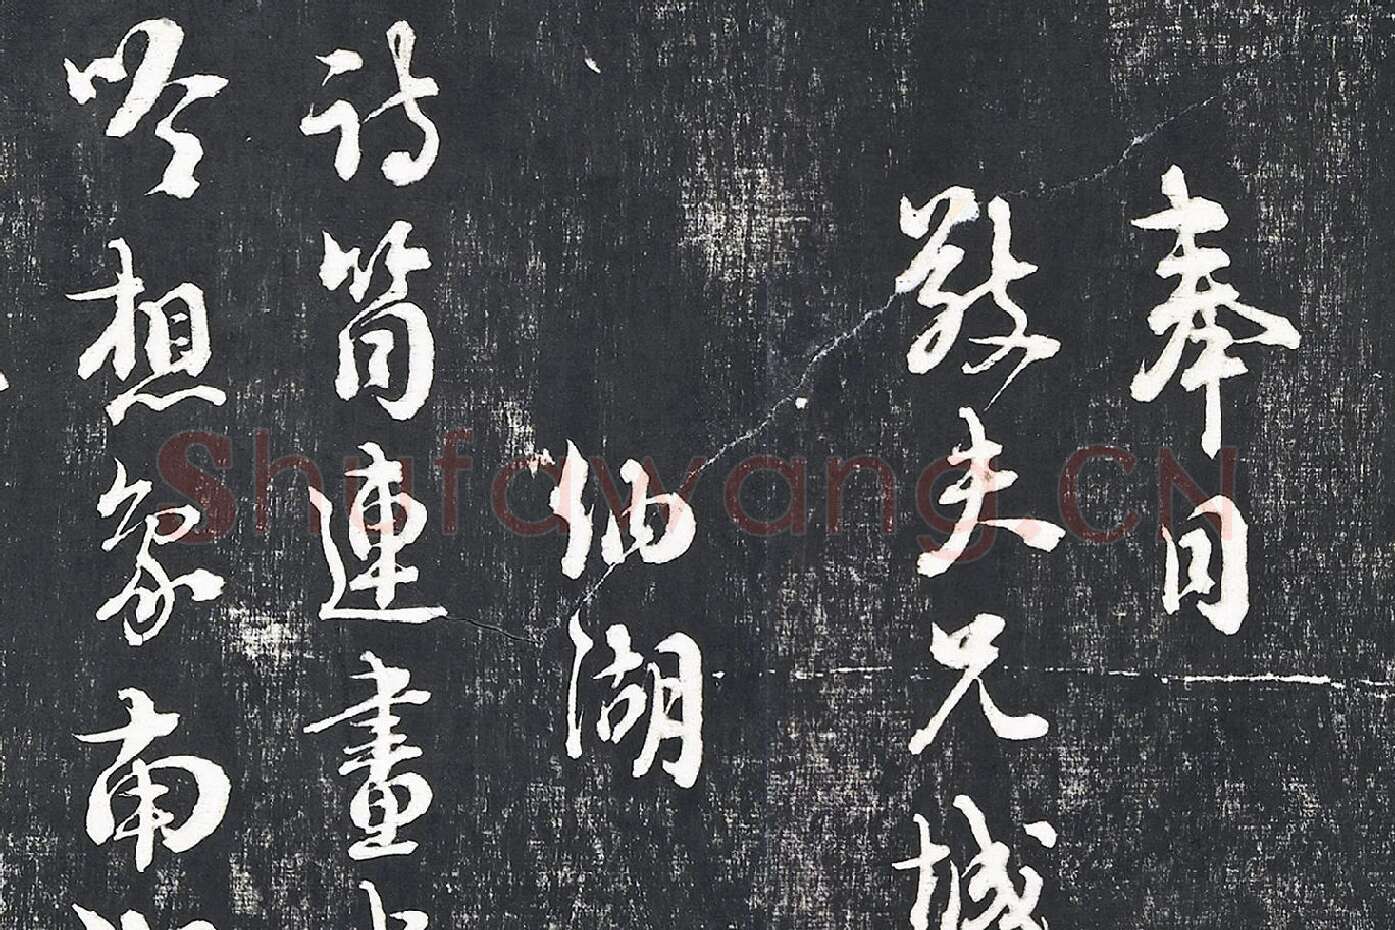 奉同
敬夫兄城
納湖
詩筒連畫
吟想象南
Shufawang.CN